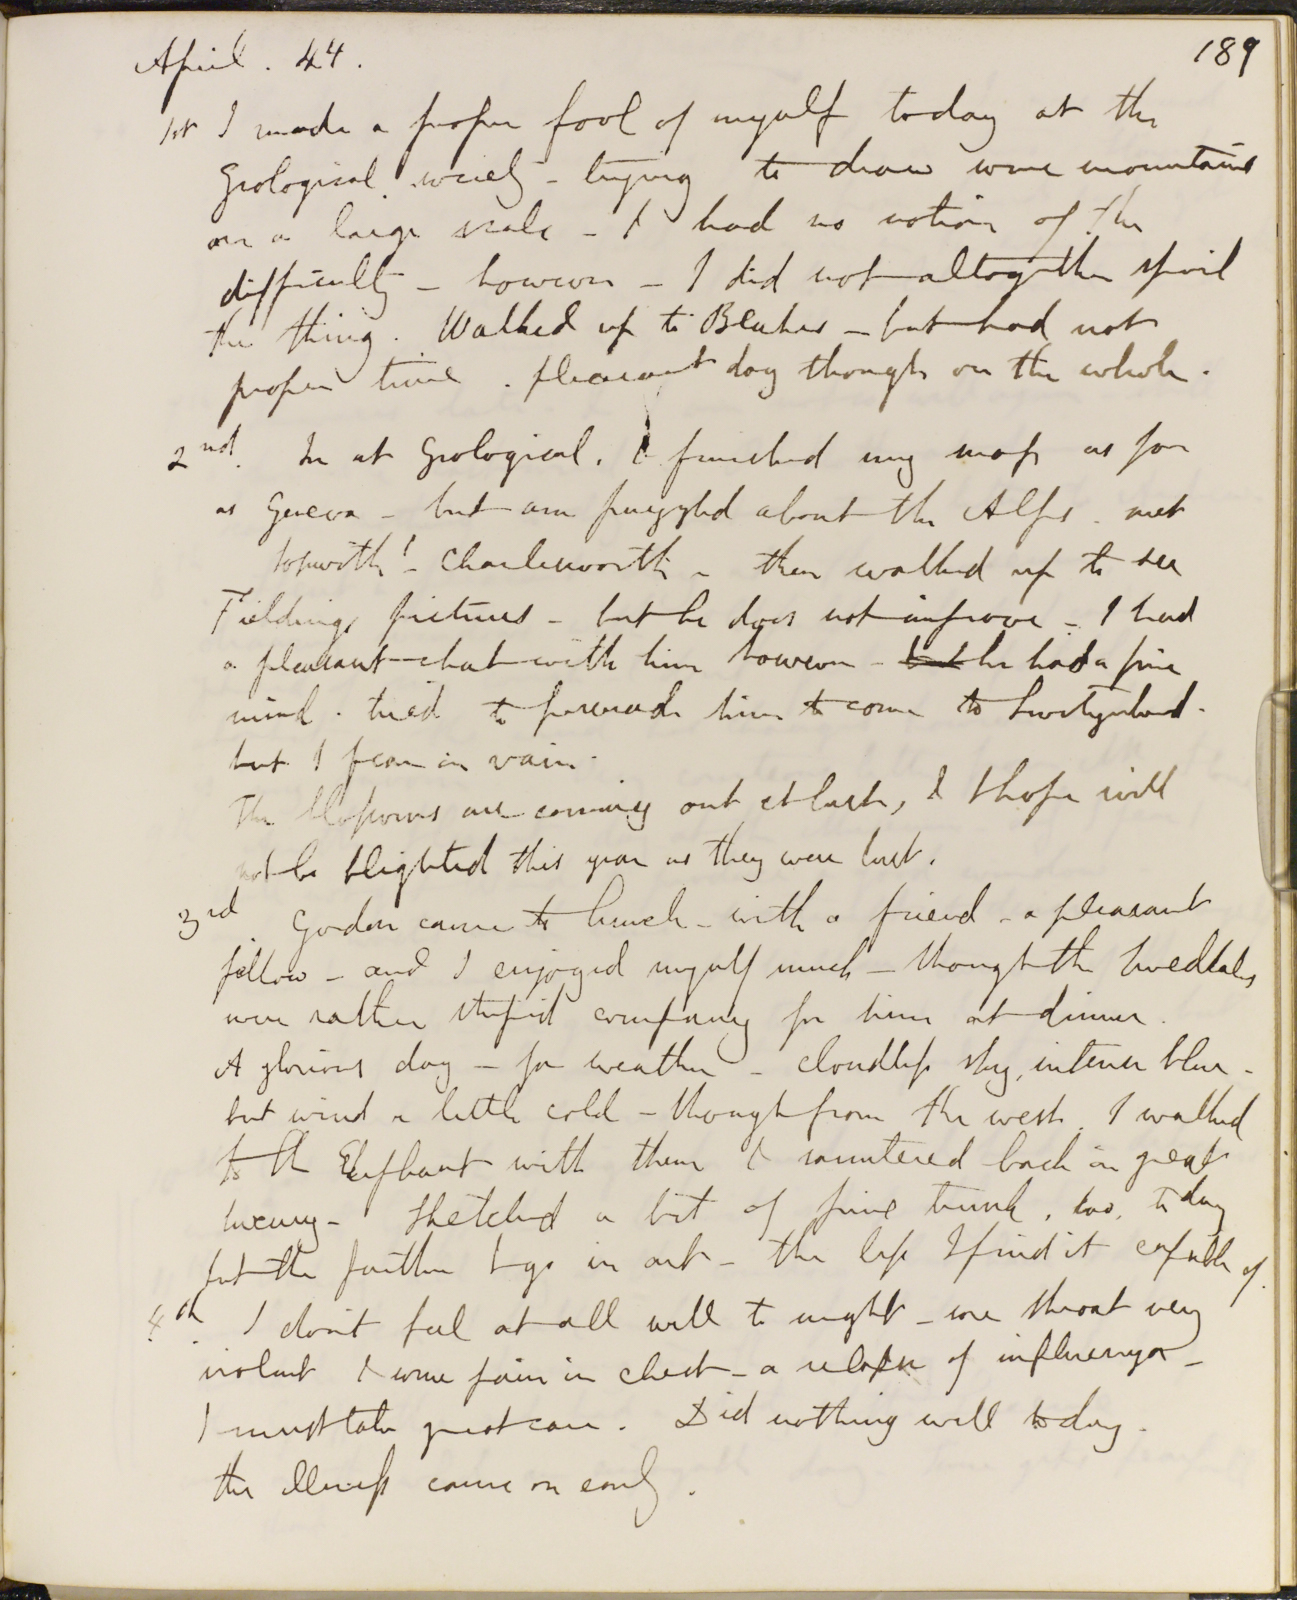 April. 44.
189
1st I made a proper fool of myself today at the
Geological society - trying to draw some mountains
on a large scale - I had no notion of the
difficulty - however - I did not altogether spoil
the thing. Walked up to Blakes - but had not
proper time. pleasant day though on the whole.
2nd. In at Geological, & finished my map as far
as Geneva - but am puzzled about the Alps. met
Sopwith & Charlesworth - then walked up to see
Fieldings pictures - but he does not improve - I had
a pleasant chat with him however - but he had a fine
mind. tried to persuade him to come to Switzerland.
but I fear in vain.
The blossoms are coming out at last, & I hope will
not be blighted this year as they were last.
3rd. Gordon came to lunch - with a friend - a pleasant
fellow - and I enjoyed myself much - though the Tweddales
were rather stupid company for him at dinner.
A glorious day - for weather - cloudless sky, intense blue -
but wind a little cold - though from the west. I walked
to the Elephant with them & sauntered back in great
luxury - Sketched a bit of pine trunk, too, to day
but the farther I go in art - the less I find it capable of.
4th. I don't feel at all well to night - sore throat very
violent & some pain in chest - a relapse of influenza -
I must take great care. Did nothing well to day.
the illness came on early.